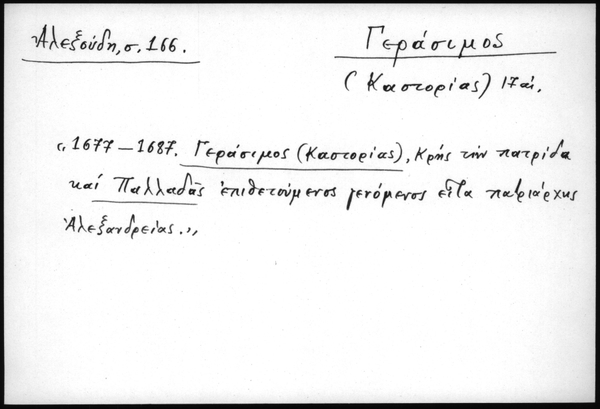 Ἀλεξούδη, σ. 166.
Γεράσιμος
(Καστορίας) 17 αἰ.
"1677 – 1687. Γεράσιμος (Καστορίας), Κρής τήν πατρίδα
καί Παλλαδᾶς ἐπιθετούμενος γενόμενος εἶτα πατριάρχης
Ἀλεξανδρείας."